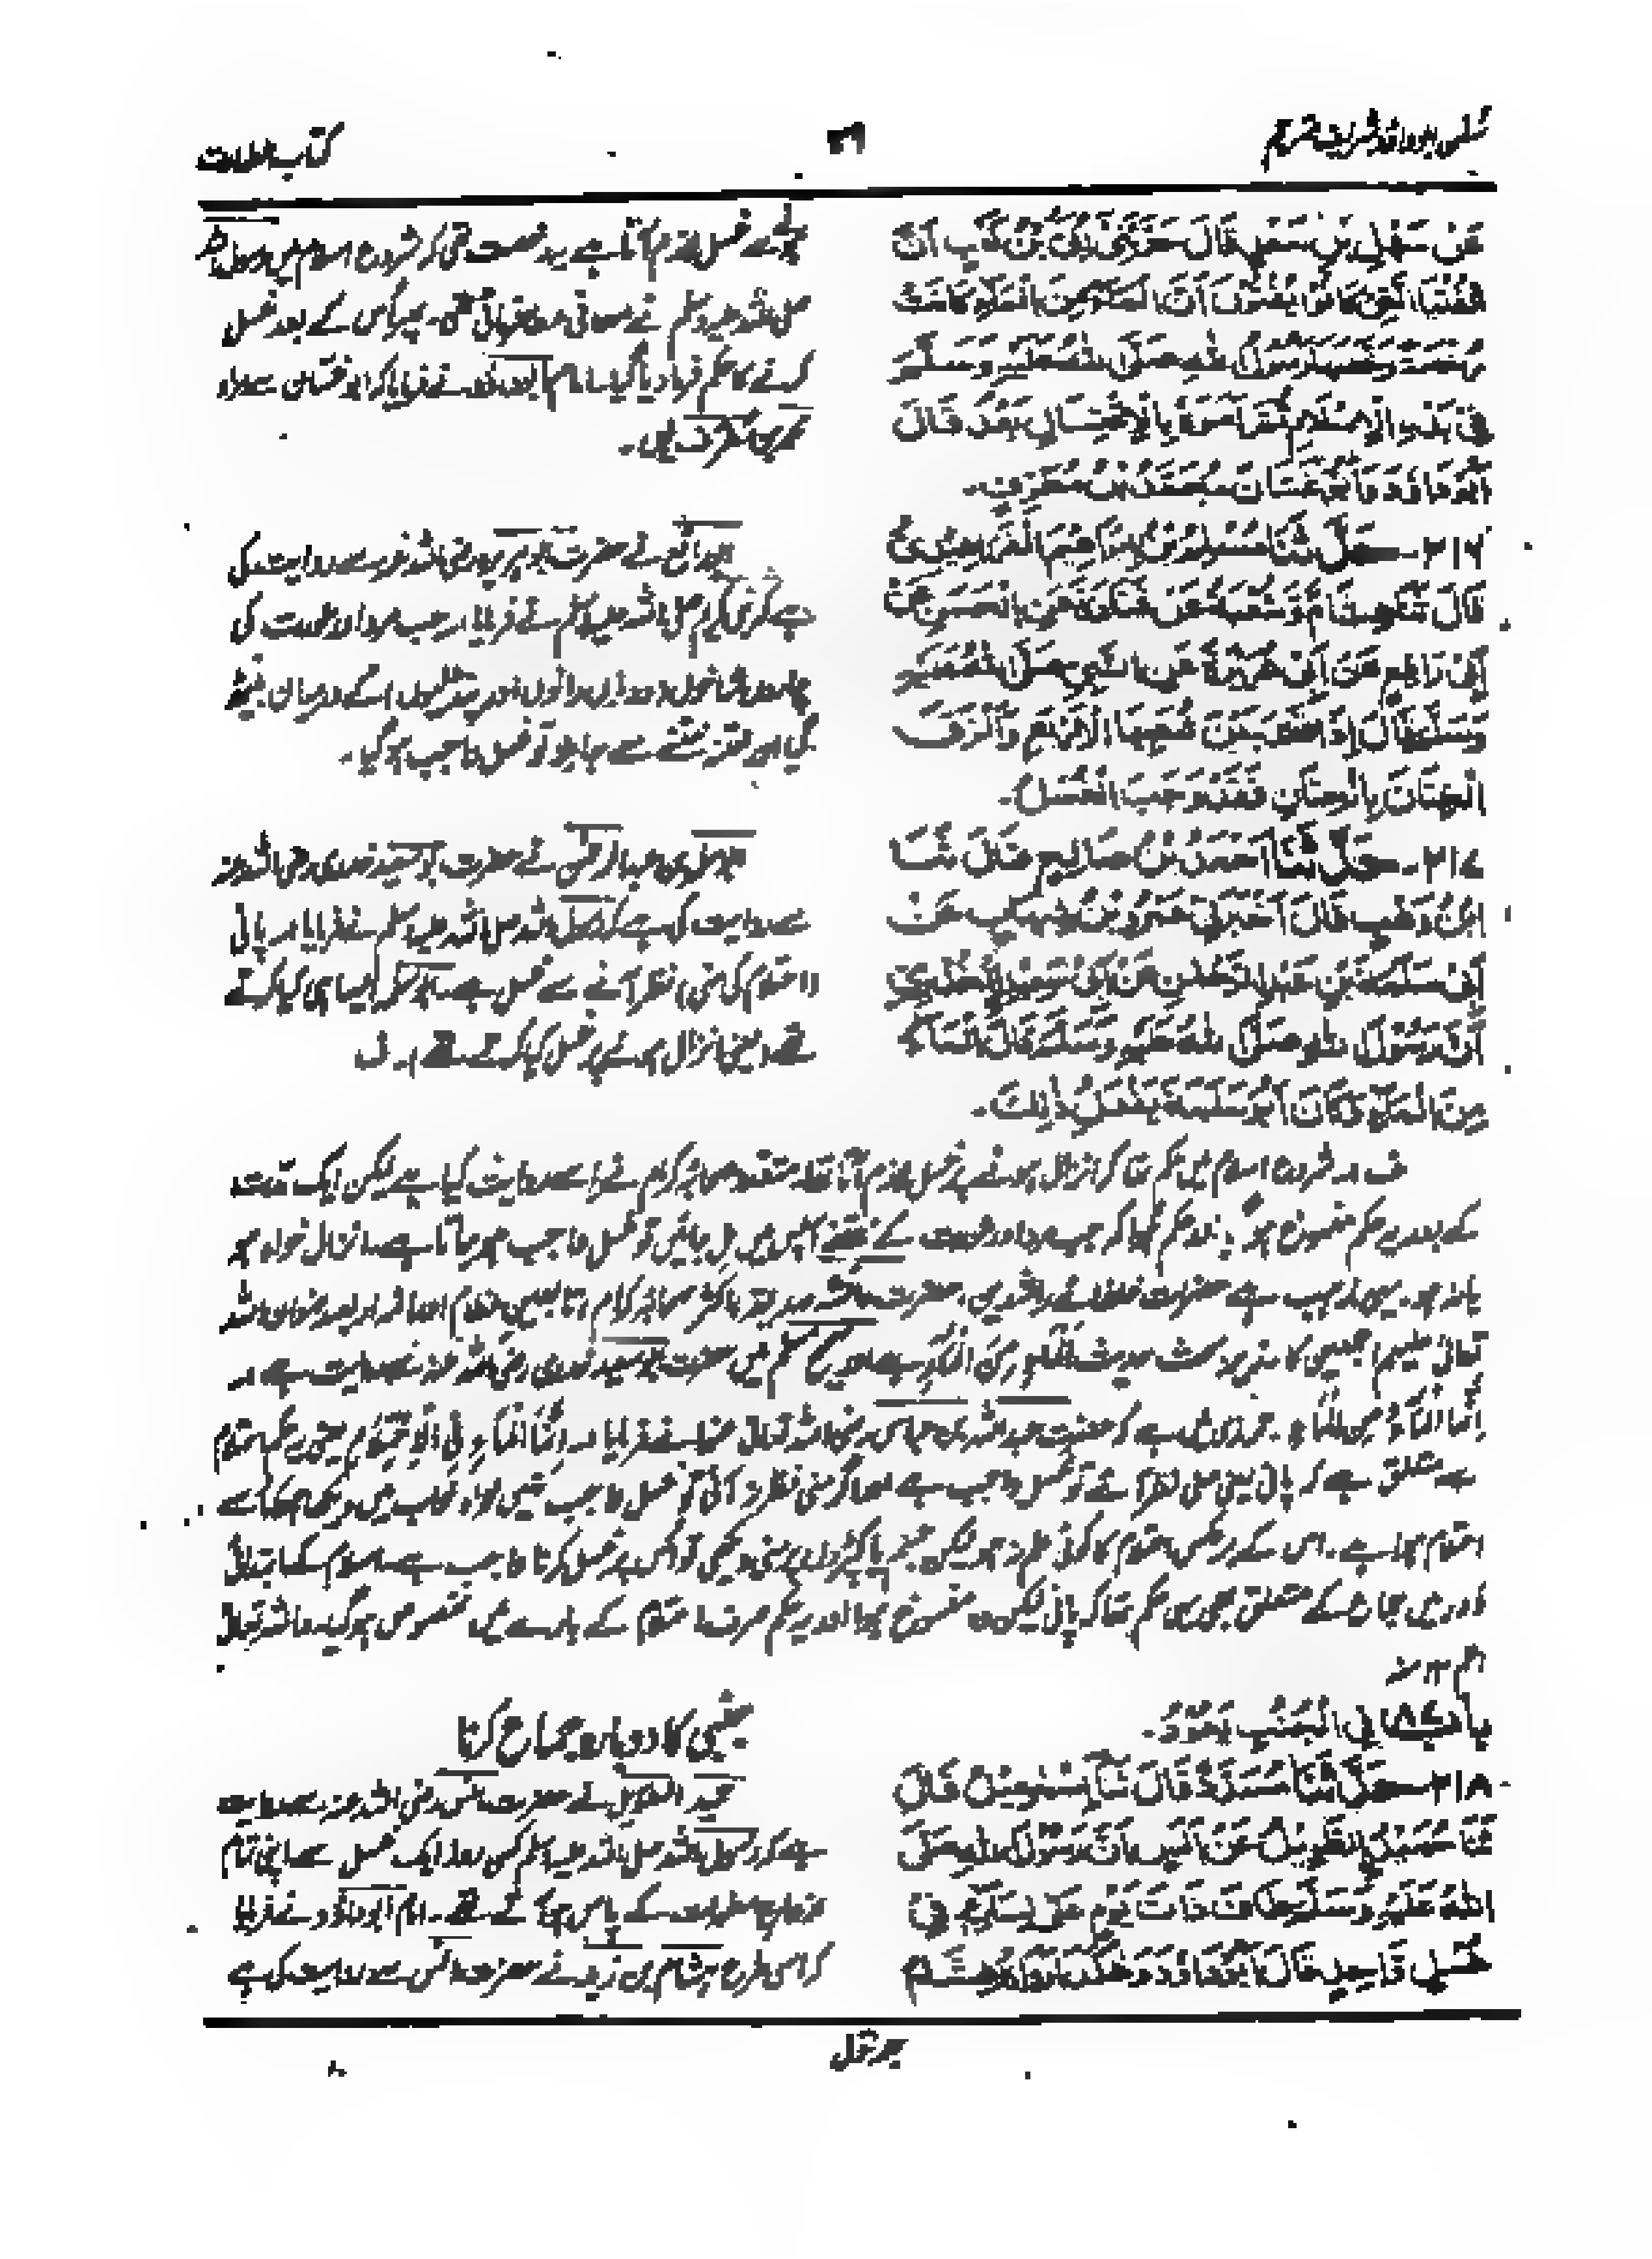 سنن ابوداؤد شریف مترجم
کتاب الطہارت
عَنْ سَهْلِ بْنِ سَعْدٍ قَالَ حَدَّثَنِي أُبَيُّ بْنُ كَعْبٍ أَنَّ
الْفُتْيَا الَّتِي كَانُوا يُفْتُونَ أَنَّ الْمَاءَ مِنَ الْمَاءِ كَانَتْ
رُخْصَةً رَخَّصَهَا رَسُولُ اللهِ صَلَّى اللهُ عَلَيْهِ وَسَلَّمَ
فِي بَدْءِ الْإِسْلَامِ ثُمَّ أَمَرَ بِالْاِغْتِسَالِ بَعْدُ قَالَ
أَبُو دَاوُدَ أَبُو غَسَّانَ مُحَمَّدُ بْنُ مُطَرِّفٍ۔
سے غسل لازم آتا ہے یہ رخصت تھی کہ شروع اسلام میں رسول اللہ
صلی اللہ علیہ وسلم نے عطا فرمائی تھی۔ پھر اس کے بعد غسل
کرنے کا حکم فرما دیا گیا۔ امام ابوداؤد نے فرمایا کہ ابو غسان سے مراد
محمد بن مطرف ہیں۔
۲۱۶۔ حَدَّثَنَا مُسْلِمُ بْنُ إِبْرَاهِيمَ الْفَرَاهِيدِيُّ
قَالَ ثَنَا هِشَامٌ وَشُعْبَةُ عَنْ قَتَادَةَ عَنِ الْحَسَنِ عَنْ
أَبِي رَافِعٍ عَنْ أَبِي هُرَيْرَةَ عَنِ النَّبِيِّ صَلَّى اللهُ عَلَيْهِ
وَسَلَّمَ قَالَ إِذَا قَعَدَ بَيْنَ شُعَبِهَا الْأَرْبَعِ وَأَلْزَقَ
الْخِتَانَ بِالْخِتَانِ فَقَدْ وَجَبَ الْغُسْلُ۔
ابورافع نے حضرت ابوہریرہ رضی اللہ عنہ سے روایت کی
ہے کہ نبی کریم صلی اللہ علیہ وسلم نے فرمایا: جب مرد اور عورت کی
چاروں شاخوں دو
گیا اور ختنہ ختنے سے جا ملا تو غسل واجب ہو گیا۔
۲۱۷۔ حَدَّثَنَا أَحْمَدُ بْنُ صَالِحٍ قَالَ ثَنَا
ابْنُ وَهْبٍ قَالَ أَخْبَرَنِي عَمْرٌو عَنِ ابْنِ شِهَابٍ عَنْ
أَبِي سَلَمَةَ بْنِ عَبْدِ الرَّحْمٰنِ عَنْ أَبِي سَعِيدٍ الْخُدْرِيِّ
أَنَّ رَسُولَ اللهِ صَلَّى اللهُ عَلَيْهِ وَسَلَّمَ قَالَ الْمَاءُ
مِنَ الْمَاءِ وَكَانَ أَبُو سَلَمَةَ يَفْعَلُ ذٰلِكَ۔
ابوسلمہ بن عبدالرحمٰن نے حضرت ابوسعید خدری رضی اللہ عنہ
سے روایت کی ہے کہ رسول اللہ صلی اللہ علیہ وسلم نے فرمایا: پانی
(احتلام کی منی) نظر آنے سے غسل ہے۔ ابوسلمہ ایسا ہی کیا کرتے
تھے (یعنی انزال ہونے پر غسل کیا کرتے تھے)۔ ف
ف۔ شروع اسلام میں حکم تھا کہ انزال ہونے پر غسل لازم آتا تھا۔ متعدد صحابہ کرام نے اسے روایت کیا ہے لیکن ایک مدت
کے بعد یہ حکم منسوخ ہو گیا اور حکم ہوا کہ جب مرد اور عورت کے ختنے آپس میں مل جائیں تو غسل واجب ہو جاتا ہے، انزال خواہ ہو
یا نہ ہو۔ یہی مذہب ہے حضرات خلفائے راشدین، حضرت عائشہ صدیقہ، اکثر صحابہ کرام، تابعین عظام اور ائمہ اربعہ رضوان اللہ
تعالیٰ علیہم اجمعین کا۔ زیر بحث حدیث الْمَاءُ مِنَ الْمَاءِ ہے اور صحیح مسلم میں حضرت ابوسعید خدری رضی اللہ عنہ سے روایت ہے:
إِنَّمَا الْمَاءُ مِنَ الْمَاءِ۔ ترمذی میں ہے کہ حضرت عبداللہ بن عباس رضی اللہ تعالیٰ عنہما نے فرمایا: إِنَّمَا الْمَاءُ مِنَ الْمَاءِ فِي الْاِحْتِلَامِ یعنی یہ حکم احتلام
سے متعلق ہے کہ پانی یعنی منی نظر آئے تو غسل واجب ہے اور اگر منی نظر نہ آئی تو غسل واجب نہیں خواہ خواب میں دیکھا ہو کہ اسے
احتلام ہوا ہے۔ اس کے برعکس احتلام کا کوئی علم نہ ہو لیکن جسم یا کپڑوں پر منی دیکھی تو اس پر غسل کرنا واجب ہے۔ اسلام کے ابتدائی
دور میں جماع کے متعلق بھی یہی حکم تھا کہ پانی لیکن وہ منسوخ ہوا اور یہ حکم صرف احتلام کے بارے میں مخصوص ہو گیا۔ واللہ تعالیٰ
اعلم
بَابٌ فِي الْجُنُبِ يَعُودُ۔
جنبی کا دوبارہ جماع کرنا
۲۱۸۔ حَدَّثَنَا مُسَدَّدٌ قَالَ ثَنَا إِسْمٰعِيلُ قَالَ
ثَنَا حُمَيْدٌ الطَّوِيلُ عَنْ أَنَسٍ أَنَّ رَسُولَ اللهِ صَلَّى
اللهُ عَلَيْهِ وَسَلَّمَ طَافَ ذَاتَ يَوْمٍ عَلَى نِسَائِهِ فِي
غُسْلٍ وَاحِدٍ قَالَ أَبُو دَاوُدَ وَهٰكَذَا رَوَاهُ هِشَامُ
حمید الطویل نے حضرت انس رضی اللہ عنہ سے روایت
ہے کہ رسول اللہ صلی اللہ علیہ وسلم کسی روز ایک غسل سے اپنی تمام
ازواج مطہرات کے پاس ہو آئے تھے۔ امام ابوداؤد نے فرمایا
کہ اسی طرح ہشام بن زید نے حضرت انس سے روایت کی ہے
جلد اول